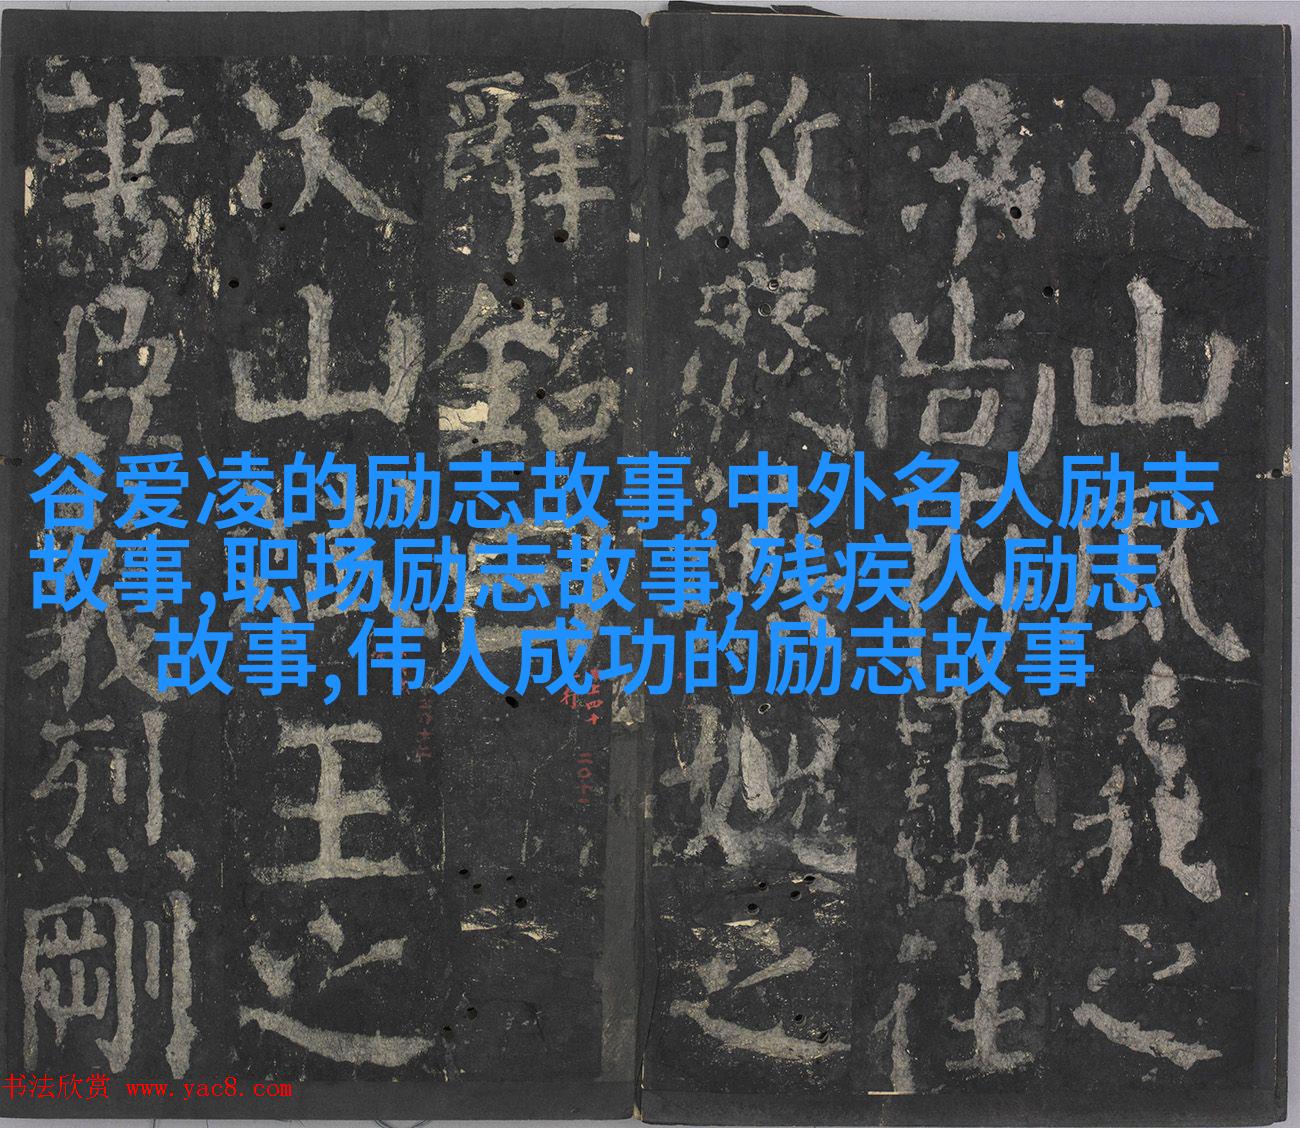 次山風義之
尚往
敢媿之
辭銘曰
次山王之
藎臣義烈剛
谷爱凌的励志故事,中外名人励志
故事,职场励志故事,残疾人励志
故事,伟人成功的励志故事
书法欣赏 www.yac8.com